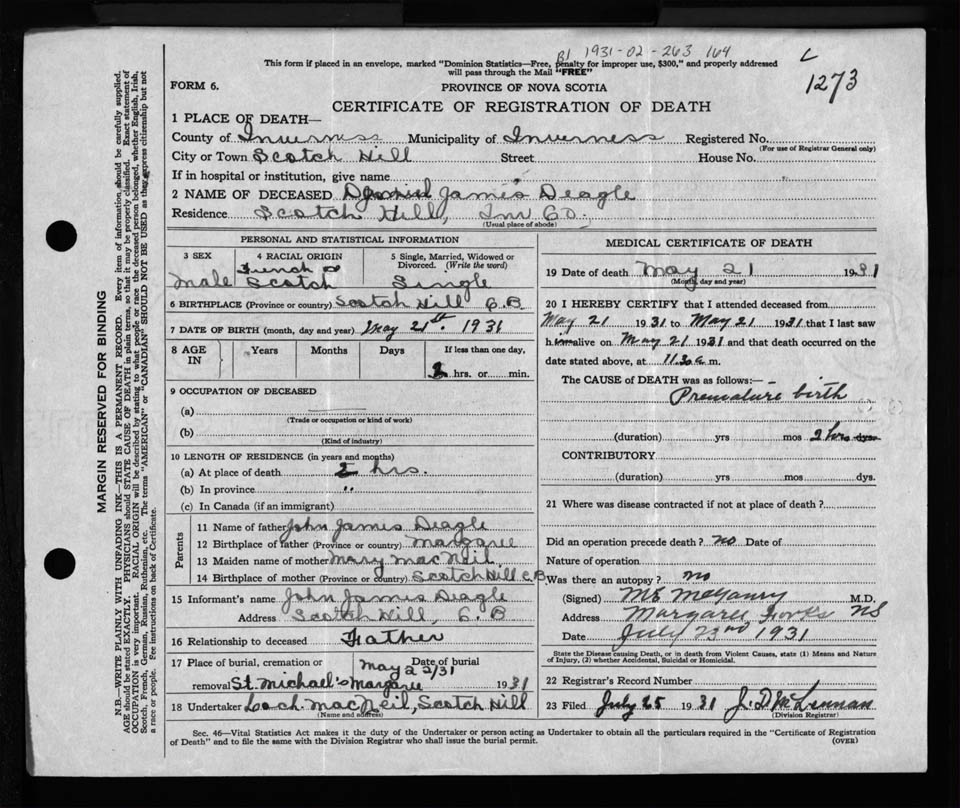 B1 1931-02-263 164
L
1273
This form if placed in an envelope, marked "Dominion Statistics—Free, penalty for improper use, $300," and properly addressed
will pass through the Mail "FREE"
FORM 6.
PROVINCE OF NOVA SCOTIA
CERTIFICATE OF REGISTRATION OF DEATH
1 PLACE OF DEATH—
County of Inverness Municipality of Inverness Registered No.
(For use of Registrar General only)
City or Town Scotch Hill Street House No.
If in hospital or institution, give name
2 NAME OF DECEASED James Deagle
Residence Scotch Hill, Inv Co.
(Usual place of abode)
PERSONAL AND STATISTICAL INFORMATION
3 SEX 4 RACIAL ORIGIN 5 Single, Married, Widowed or Divorced. (Write the word)
Male French & Scotch Single
6 BIRTHPLACE (Province or country) Scotch Hill C.B
7 DATE OF BIRTH (month, day and year) May 21st. 1931
8 AGE IN Years Months Days If less than one day,
2 hrs. or min.
9 OCCUPATION OF DECEASED
(a)
(Trade or occupation or kind of work)
(b)
(Kind of industry)
10 LENGTH OF RESIDENCE (in years and months)
(a) At place of death 2 hrs.
(b) In province "
(c) In Canada (if an immigrant)
Parents
11 Name of father John James Deagle
12 Birthplace of father (Province or country) Margaree
13 Maiden name of mother Mary MacNeil
14 Birthplace of mother (Province or country) Scotch Hill C.B
15 Informant's name John James Deagle
Address Scotch Hill, C.B
16 Relationship to deceased Father
17 Place of burial, cremation or removal St. Michael's Margaree Date of burial May 22/31 1931
18 Undertaker Lach. MacNeil, Scotch Hill
(Name and address)
MEDICAL CERTIFICATE OF DEATH
19 Date of death May 21 1931
(Month, day and year)
20 I HEREBY CERTIFY that I attended deceased from
May 21 1931 to May 21 1931 that I last saw
him alive on May 21 1931 and that death occurred on the
date stated above, at 11.30 a m.
The CAUSE of DEATH was as follows:—
Premature birth
(duration) yrs mos 2 hrs dys
CONTRIBUTORY
(duration) yrs. mos. dys.
21 Where was disease contracted if not at place of death?
Did an operation precede death? no Date of
Nature of operation
Was there an autopsy? no
(Signed) M.D.
Address Margaree Forks NS
Date July 23rd 1931
State the Disease causing Death, or in death from Violent Causes, state (1) Means and Nature
of Injury, (2) whether Accidental, Suicidal or Homicidal.
22 Registrar's Record Number
23 Filed July 25 1931 J. D. McLennan
(Division Registrar)
Sec. 46—Vital Statistics Act makes it the duty of the Undertaker or person acting as Undertaker to obtain all the particulars required in the "Certificate of Registration
of Death" and to file the same with the Division Registrar who shall issue the burial permit.
(OVER)
MARGIN RESERVED FOR BINDING
N.B.—WRITE PLAINLY WITH UNFADING INK—THIS IS A PERMANENT RECORD. Every item of information should be carefully supplied.
AGE should be stated EXACTLY. PHYSICIANS should STATE CAUSE OF DEATH in plain terms, so that it may be properly classified. Exact statement of
OCCUPATION is very important. RACIAL ORIGIN will be described by stating to what people or race the deceased person belonged, whether English, Irish,
Scotch, French, German, Russian, Ruthenian, etc. The terms "AMERICAN" or "CANADIAN" SHOULD NOT BE USED as they express citizenship but not
a race or people. See instructions on back of Certificate.